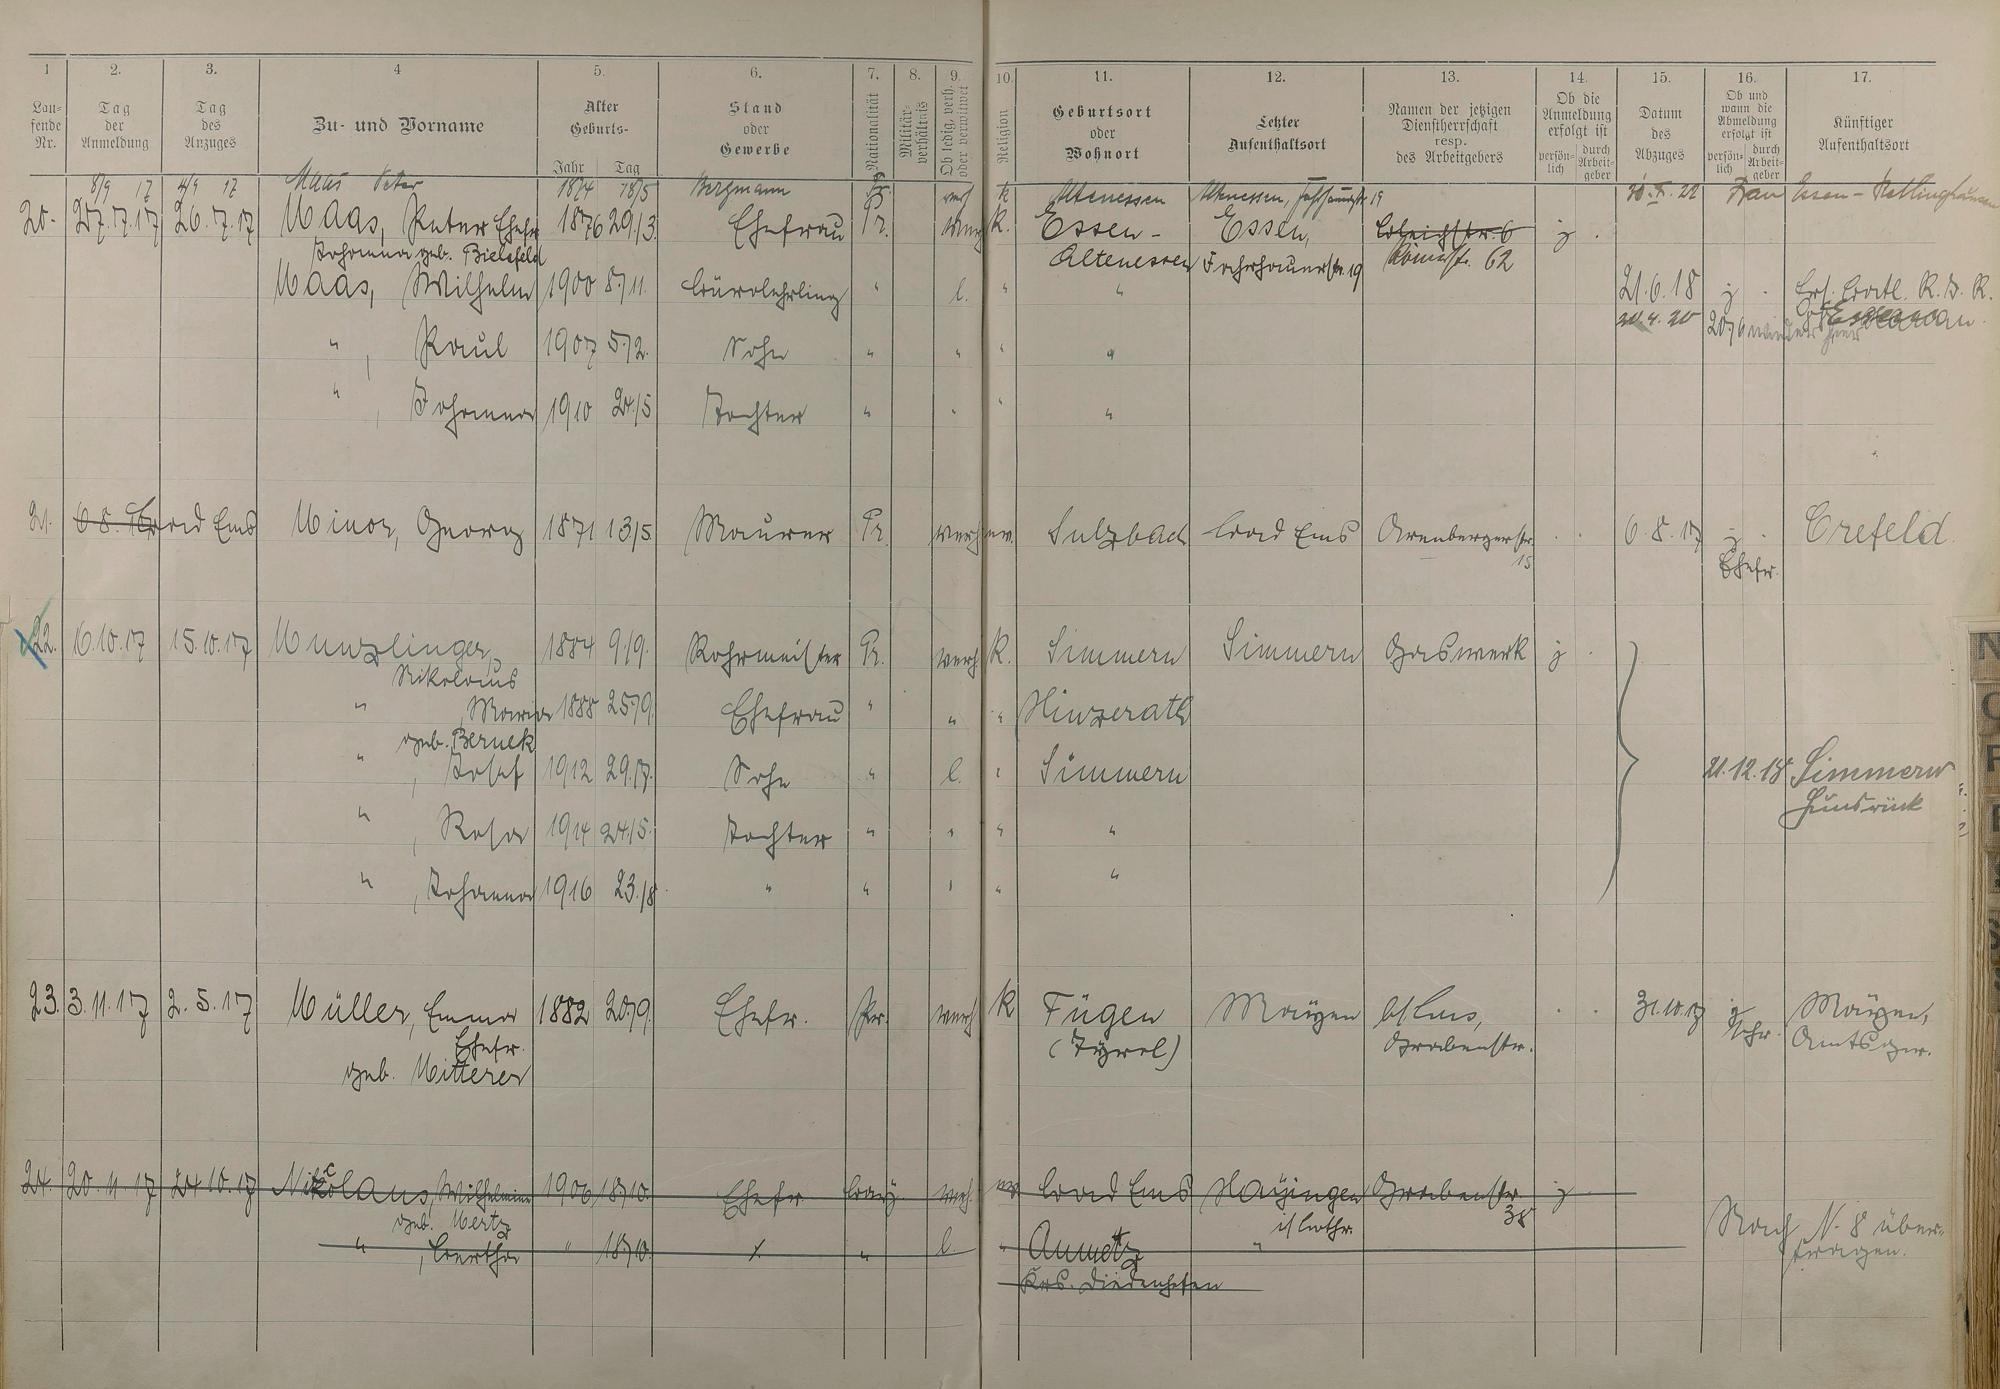 1 2. 3. 4 5. 6. 7. 8. 9. 10. 11. 12. 13. 14. 15. 16. 17.
Lau-
fende
Nr.
Tag
der
Anmeldung
Tag
des
Anzuges
Zu- und Vorname
Alter
Geburts-
Jahr Tag
Stand
oder
Gewerbe
Nationalität
Militär-
verhältnis
Ob ledig, verh.
oder verwitwet
Religion
Geburtsort
oder
Wohnort
Letzter
Aufenthaltsort
Namen der jetzigen
Dienstherrschaft
resp.
des Arbeitgebers
Ob die
Anmeldung
erfolgt ist
persön-
lich
durch
Arbeit-
geber
Datum
des
Abzuges
Ob und
wann die
Abmeldung
erfolgt ist
persön-
lich
durch
Arbeit-
geber
Künftiger
Aufenthaltsort
8/9 17 4/9 17 Maas Peter 1874 18/5 Bergmann Pr verh k Altenessen Altenessen, 19 Frau Essen-
20. 27.7.17 26.7.17 Maas, Peter Ehefr 1876 29/3. Ehefrau Pr. verh k. Essen- Essen, j .
Johanna geb. Bielefeld Altenessen 19 Römerstr. 62
Maas, Wilhelm 1900 8/11. Bürolehrling " l. " " 21.6.18 j . R. D. R.
" , Paul 1907 5/2. Sohn " " " " 20/6 wieder hier
" , Johanna 1910 24/5 Tochter " " " "
21. 6.8. Bad Ems Minor, Georg 1871 13/5 Maurer Pr. verh ev. Sulzbach Bad Ems Arenbergerstr. . . 6.8.17 j . Crefeld
15 Ehefr.
22. 16.10.17 15.10.17 Munzlinger, 1884 9/9. Rohrmeister Pr. verh. k. Simmern Simmern Gaswerk j .
Nikolaus
" , Maria 1888 25/9 Ehefrau " " " Hinzerath
geb. Bernek
" , Josef 1912 29/7. Sohn " l. " Simmern 21.12.18 Simmern
Hunsrück
" , Rosa 1914 24/5. Tochter " " " "
" , Johanna 1916 23./8 " " " " "
23. 3.11.17 2.5.17 Müller, Emma 1882 20/9. Ehefr. Pr. verh k Fügen Mayen b/Ems, . . 31.10.17 j Mayen,
Ehefr. (Tyrol) Grabenstr. Amtsger.
geb. Mitterer
24. 20.11.17 24.10.17 Nikolaus, Wilhelmine 1906 18/10. Ehefr Bay verh. ev Bad Ems Hayingen Grabenstr. j .
geb. Mertz i/ Lothr. 38 Nach N. 8 über-
" , Bertha " 18/10. " l. " Aumetz " tragen.
Krs. Diedenhofen